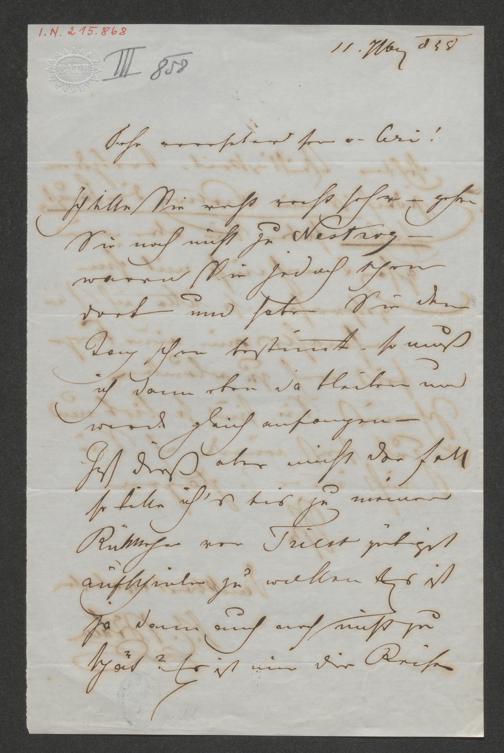 I.N. 215.868
III 858
11. März 858
Sehr verehrter Herr v.
Ich bitte Sie recht recht sehr – gehen
Sie noch nicht zu Nestroy –
waren Sie jedoch schon
dort und haben Sie den
Tag schon bestimmt – so muß
ich dann eben da bleiben und
werde gleich anfangen –
Ist dieß aber nicht der Fall
so bitte ich's bis zu meiner
Rückkehr von Triest gütigst
aufschieben zu wollen Es ist
ja dann auch noch nicht zu
spät? Es ist nun die Reise